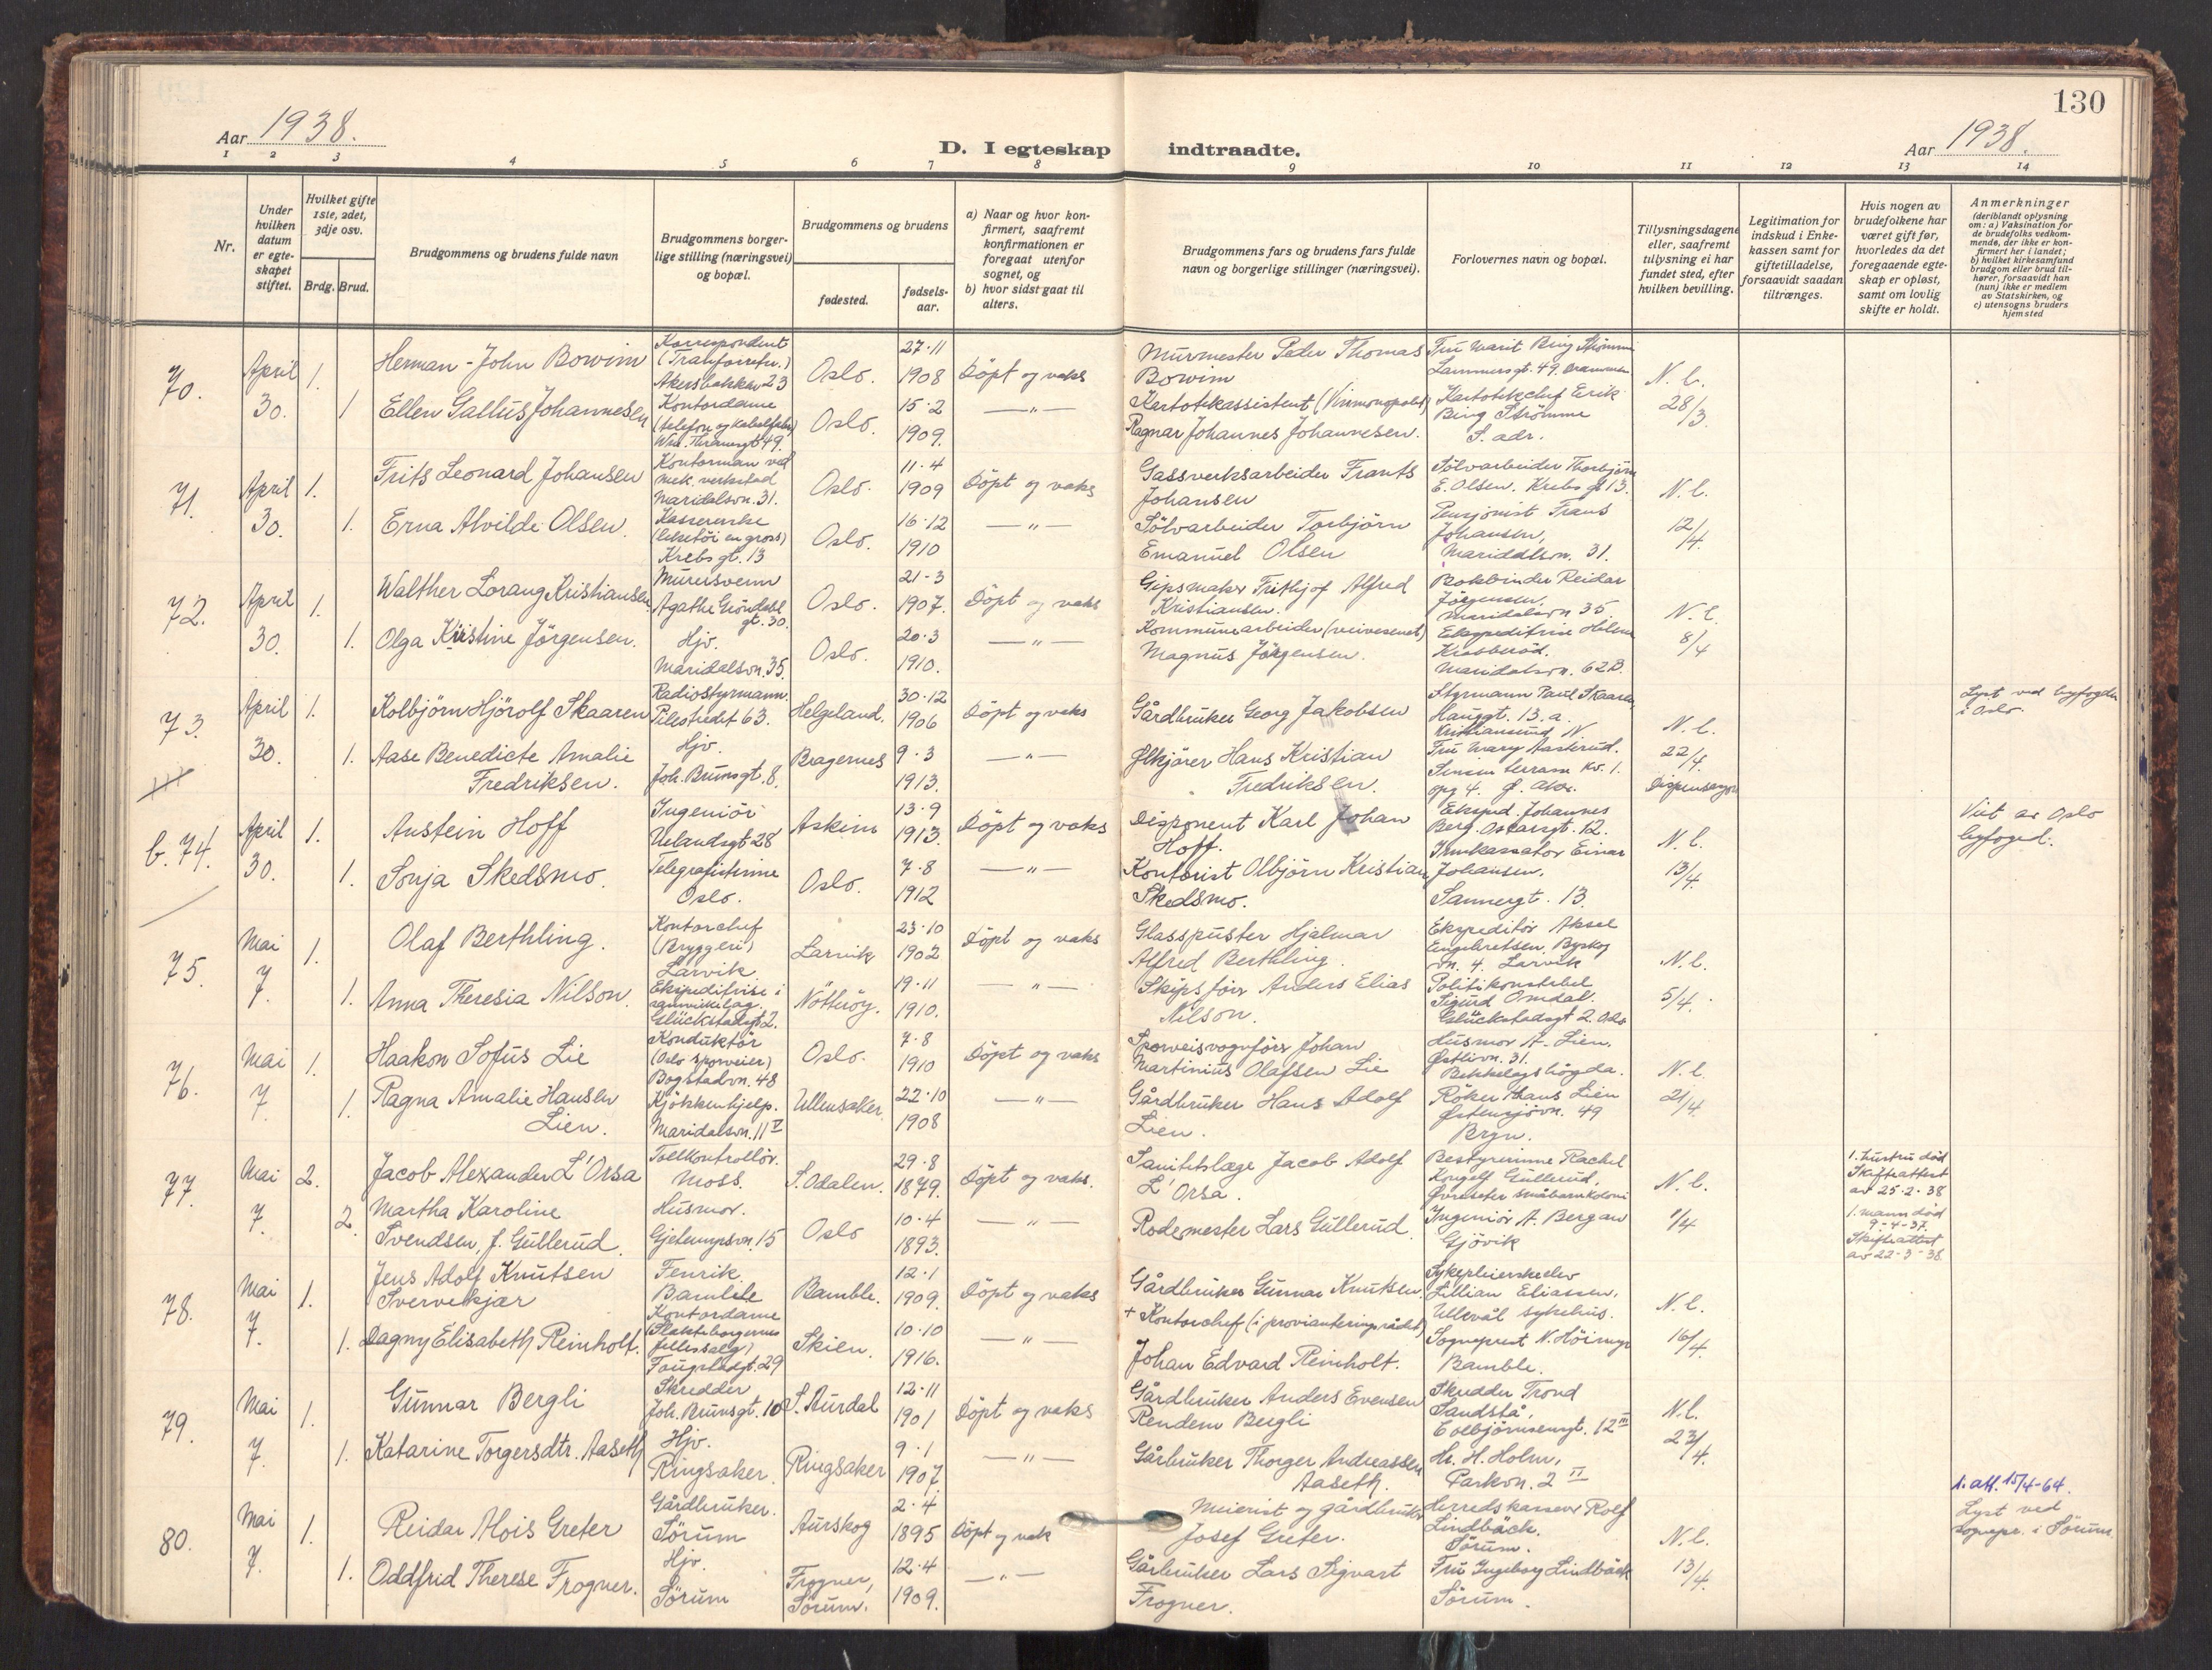 130
Aar 1938.
D. I egteskap indtraadte.
Aar 1938.
1 2 3 4 5 6 7 8 9 10 11 12 13 14
Nr.
Under hvilken datum er egte-skapet stiftet.
Hvilket gifte 1ste, 2det, 3dje osv.
Brdg. Brud.
Brudgommens og brudens fulde navn
Brudgommens borger-lige stilling (næringsvei) og bopæl.
Brudgommens og brudens
fødested.
fødsels-aar.
a) Naar og hvor kon-firmert, saafremt konfirmationen er foregaat utenfor sognet, og
b) hvor sidst gaat til alters.
Brudgommens fars og brudens fars fulde navn og borgerlige stillinger (næringsvei).
Forlovernes navn og bopæl.
Tillysningsdagene eller, saafremt tillysning ei har fundet sted, efter hvilken bevilling.
Legitimation for indskud i Enke-kassen samt for giftetilladelse, forsaavidt saadan tiltrænges.
Hvis nogen av brudefolkene har været gift før, hvorledes da det foregaaende egte-skap er opløst, samt om lovlig skifte er holdt.
Anmerkninger
(deriblandt oplysning om: a) Vaksination for de brudefolks vedkom-mende, der ikke er kon-firmert her i landet; b) hvilket kirkesamfund brudgom eller brud til-hører, forsaavidt han (hun) ikke er medlem av Statskirken, og c) utensogns bruders hjemsted
70. April 30. 1.
Herman-John Bowim
Korrespondent
Akersbakken 23
Oslo. 27.11 1908 Döpt og vaks
Murmester Peder Thomas Bowim
N. l. 28/3
1 Ellen Gallus Johannesen
Kontordame
Wm. Thranesgt 49.
Oslo. 15.2 1909. —"—
Kartotekassistent (Vinmonopolet)
Ragnar Johannes Johannesen.
Kartotekchef Erik Bing Strömme
S. adr.
71. April 30. 1.
Frits Leonard Johansen
Kontorman ved mek. verkstad
Maridalsvn. 31.
Oslo. 11.4 1909 Döpt og vaks
Gassverksarbeider Frants Johansen
Sölvarbeider Thorbjörn E. Olsen. Krebs gt 13.
N. l. 12/4.
1. Erna Alvilde Olsen.
Kassererske
(leketöi en gros)
Krebs gt. 13
Oslo. 16.12 1910 —"—
Sölvarbeider Torbjörn Emanuel Olsen
Pensjonist Frans Johansen,
Maridalsvn. 31.
72. April 30. 1.
Walther Lorang Kristiansen
Murersvenn
Agathe Gröndahl gt. 30.
Oslo. 21.3 1907. Döpt og vaks
Gipsmaker Frithjof Alfred Kristiansen.
Bokbinder Reidar Jörgensen,
Maridalsvn 35
N. l. 8/4
1. Olga Kristine Jörgensen.
Hjv.
Maridalsvn. 35.
Oslo. 20.3 1910. —"—
Kommunearbeider (veivesenet)
Magnus Jörgensen.
Maridalsvn. 62B.
73. April 30. 1.
Kolbjörn Hjörolf Skaaren
Radiostyrmann.
Pilestredet 63.
Helgeland. 30.12 1906 Döpt og vaks
Gårdbruker Georg Jakobsen
Styrmann Paul Skaaren
Hauggt. 13.a.
Kristiansund N.
N. l. 22/4.
Lyst ved byfogden i Oslo.
1. Aase Benedicte Amalie Fredriksen.
Hjv.
Joh. Brunsgt. 8.
Bragernes 9.3 1913. —"—
Ølkjører Hans Kristian Fredriksen.
Fru Mary Aasterud.
Sinsen terrasse
b. 74. April 30. 1.
Austein Hoff
Ingeniör
Uelandsgt 28
Askim 13.9 1913. Döpt og vaks
Disponent Karl Johan Hoff.
Eksped. Johannes Berg. Oskarsgt. 12.
N. l. 13/4.
Viet av Oslo byfoged.
1. Sonja Skedsmo.
Telegrafistinne
Oslo.
Oslo. 7.8 1912 —"—
Kontorist Olbjörn Kristian Skedsmo.
Innkassator Einar Johansen.
Sannergt. 13.
75. Mai 7. 1.
Olaf Berthling.
Kontorchef
(Bryggeri)
Larvik.
Larvik 23.10 1902 Döpt og vaks
Glasspuster Hjalmar Alfred Berthling.
Ekspeditör Aksel Engebretsen, Byskog vn. 4. Larvik
N. l. 5/4.
1. Anna Theresia Nilson.
Ekspeditrise i samvirkelag.
Glückstadsgt 2.
Nötteröy. 19.11 1910. —"—
Skipsförer Anders Elias Nilson.
Politikonstabel Sigurd Omdal.
Glückstadsgt 2. Oslo
76. Mai 7. 1.
Haakon Sofus Lie
Konduktör
(Oslo Sporveier)
Bogstadvn. 48
Oslo. 7.8 1910 Döpt og vaks
Sporveisvognförer Johan Martinius Olafsen Lie
Husmor A. Lien.
Østlivn. 31.
Bekkelagshögda.
N. l. 21/4.
1. Ragna Amalie Hansen Lien.
Kjökkenhjelp.
Maridalsvn. 11 V
Ullensaker 22.10 1908 —"—
Gårdbruker Hans Adolf Lien.
Röker Hans Lien
Østensjövn. 49
Bryn.
77. Mai 7. 2.
Jacob Alexander L'Orsa
Tollkontrollör.
Moss.
S. Odalen. 29.8 1879. Döpt og vaks.
Sanitetslæge Jacob Adolf L'Orsa.
Bestyrerinne Rachel Kongelf Gullerud,
Øvreseter småbarnkoloni
N. l. 1/4
1. hustru död
Skifteattest av 25.2.38
2. Martha Karoline Svendsen, f. Gullerud.
Husmor.
Gjetemyrsvn. 15
Oslo 10.4 1893. —"—
Rodemester Lars Gullerud.
Ingeniör A. Bergan
Gjövik
1. mann död 9-4-37.
Skifteattest av 22-3-38.
78. Mai 7. 1.
Jens Adolf Knutsen Svervekjær
Fenrik
Bamble
Bamble. 12.1 1909. Döpt og vaks
Gårdbruker Gunnar Knutsen.
Sykepleierskeelev Lillian Eliassen,
Ullevål sykehus.
N. l. 16/4.
1. Dagny Elisabeth Reinholt.
Kontordame
fellessalg)
Fougstadgt. 29
Skien. 10.10 1916. —"—
+ Kontorchef (i provianteringsrådet)
Johan Edvard Reinholt.
Sogneprest N. Höimyr
Bamble.
79. Mai 7. 1.
Gunnar Bergli
Skredder
Joh. Brunsgt. 10
S. Aurdal 12.11 1901 Döpt og vaks
Gårdbruker Anders Evensen Rendem Bergli
Skredder Trond Sandstå,
Colbjörnsensgt. 12 III
N. l. 23/4.
1. Katarine Torgersdtr. Aaseth
Hjv.
Ringsaker.
Ringsaker 9.1 1907. —"—
Gårbruker Thorger Andreassen Aaseth.
Hr. H. Holm,
Parkvn. 2 II
80. Mai 7. 1.
Reidar Alois Greter
Gårdbruker.
Sörum
Aurskog 2.4 1895 Döpt og vak
Meierist og gårdbruker Josef Greter.
Herredskasserer Rolf Lindbäck.
Sörum.
N. l. 13/4.
1. att. 15/4-64.
Lyst ved sognepr. i Sörum.
1. Oddfrid Therese Frogner.
Hjv.
Sörum
Frogner, Sörum. 12.4 1909. —"—
Gårbruker Lars Sigvart Frogner.
Fru Ingeborg Lindbäck
Sörum.